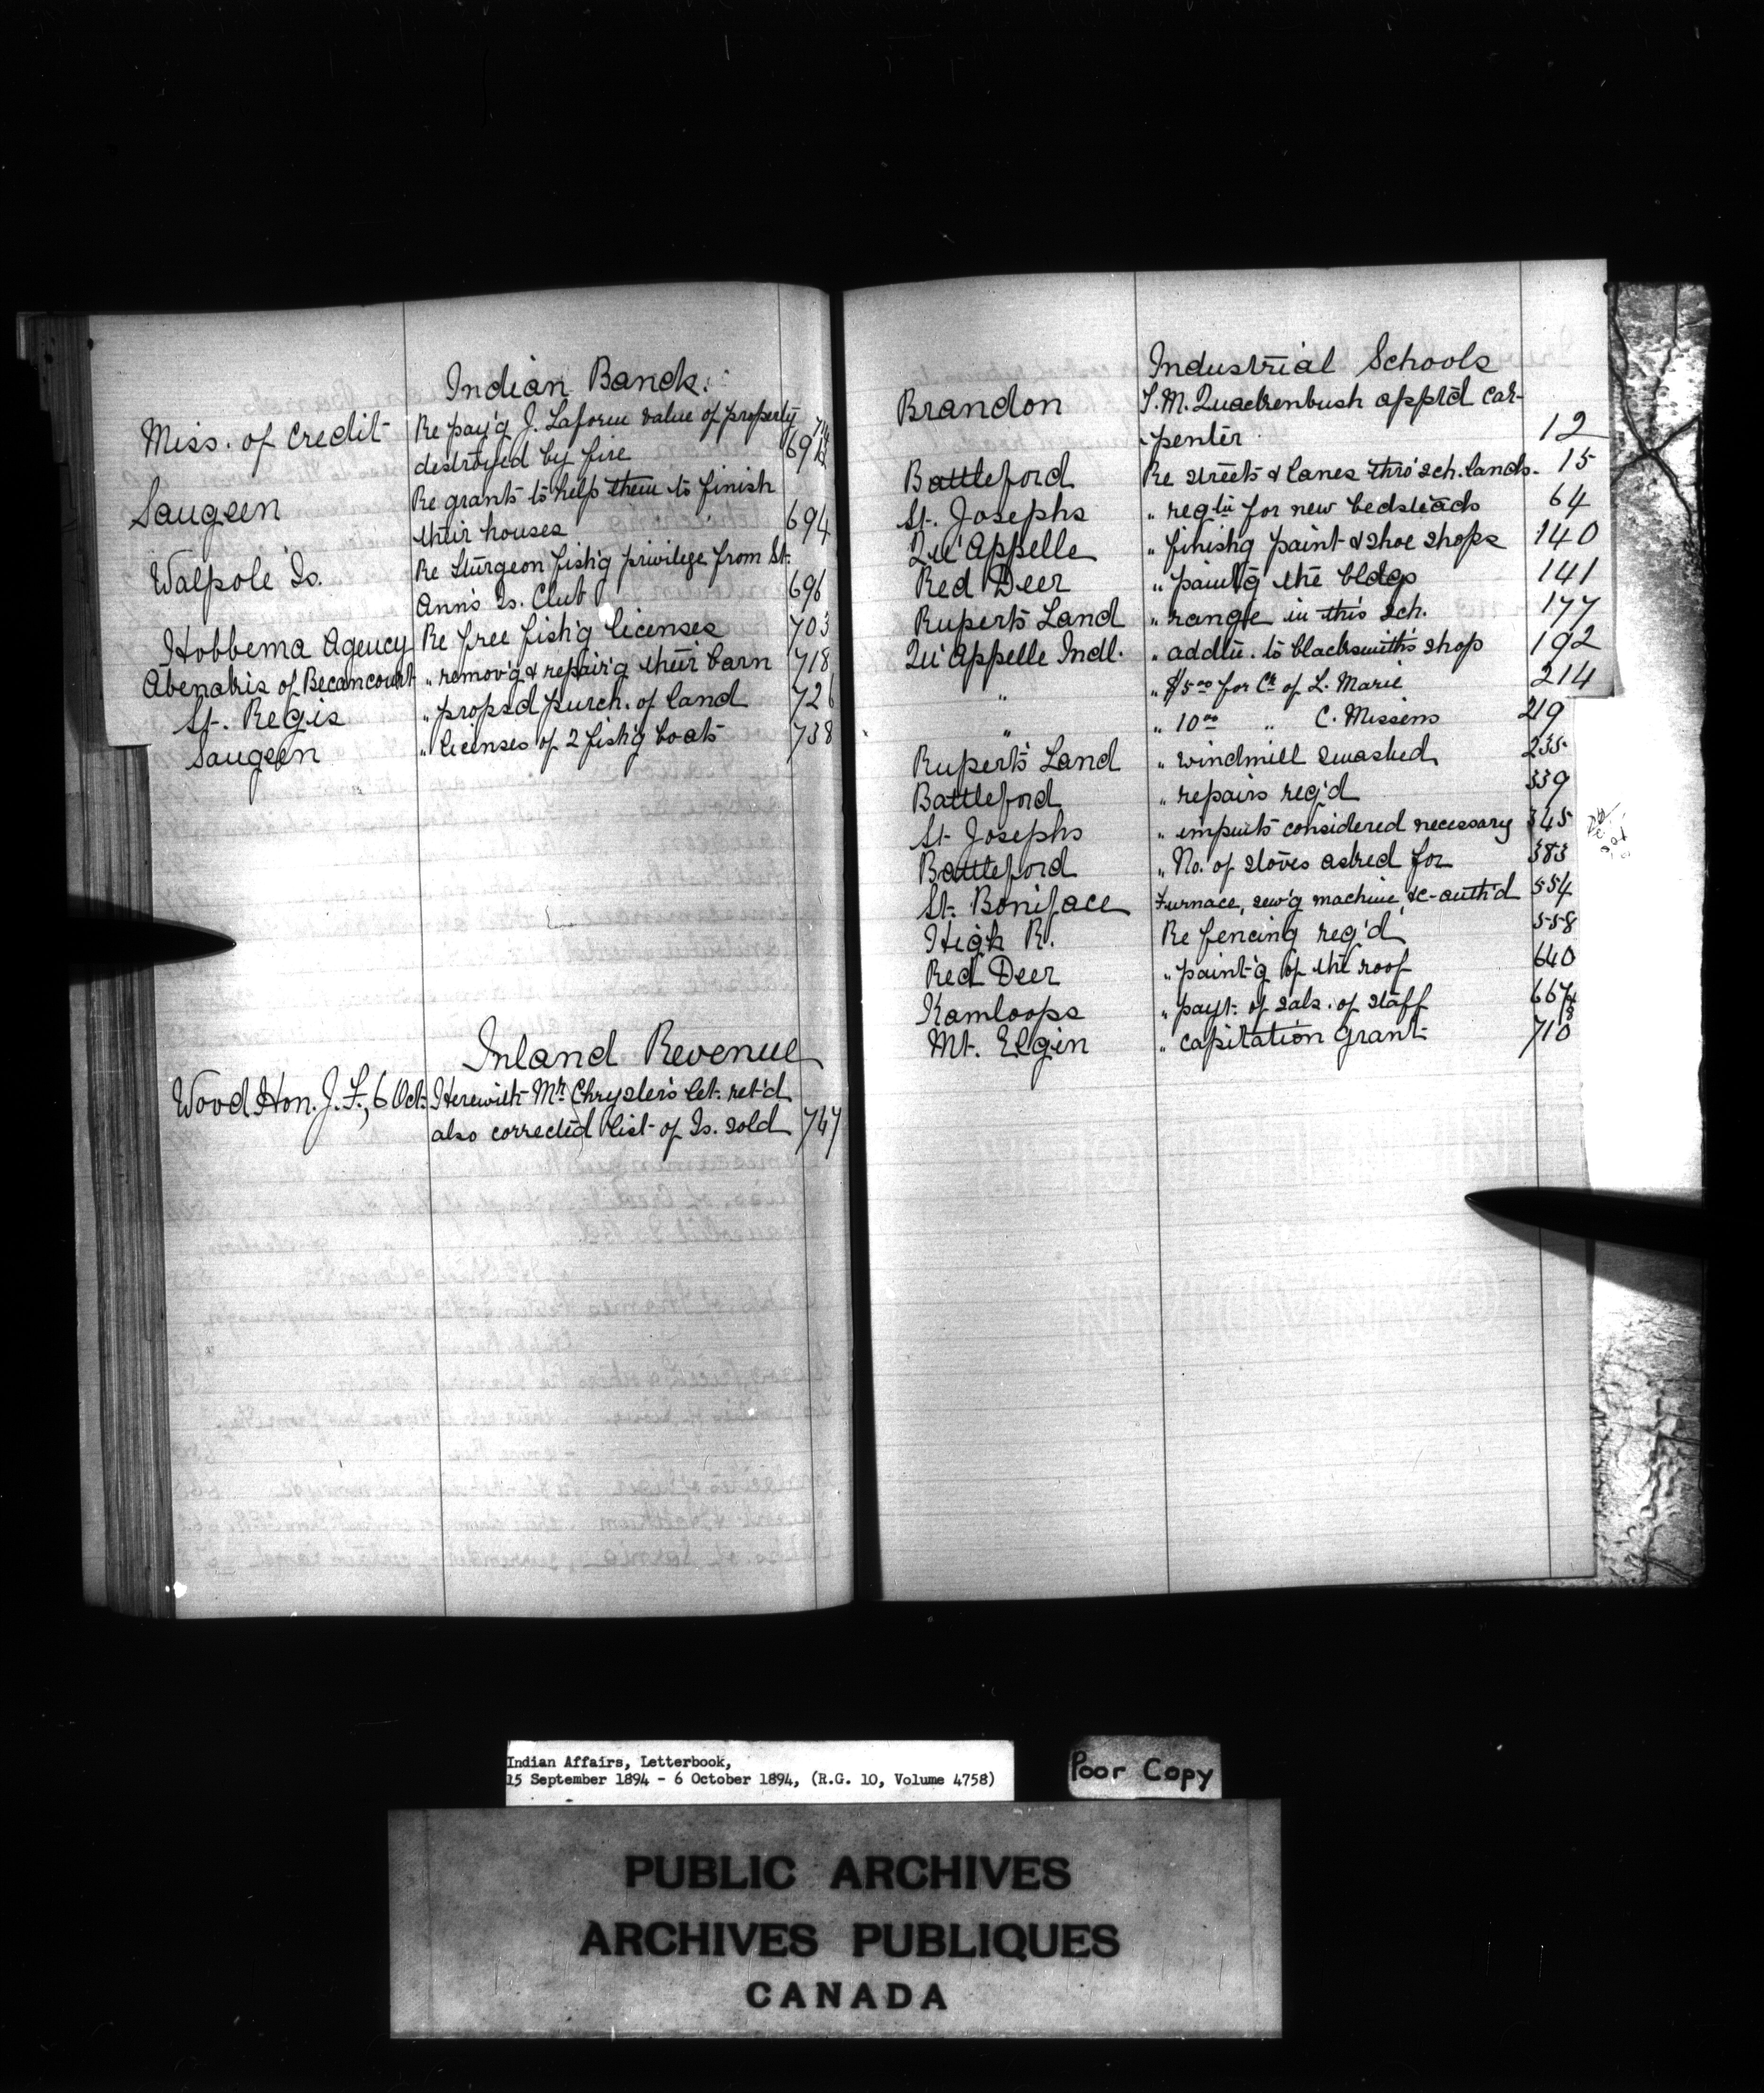 Indian Bands.
Miss. of Credit Re pay'g J. Laform value of property
destroyed by fire 691
Saugeen Re grants to help them to finish
their houses 694
Walpole Is. Re Sturgeon fish'g privilege from St.
Ann's Is. Club 696
Hobbema Agency Re free fish'g licenses 703
Abenakis of Becancourt " remov'g & repair'g their barn 718
St. Regis " propsd purch. of land 726
Saugeen " licenses of 2 fish'g boats 738
Inland Revenue
Wood Hon. J. F., 6 Oct. Herewith Mr Chrysler's let. ret'd
also corrected list of Is. sold 747
Industrial Schools
Brandon Quackenbush app't'd car-
penter 12
Battleford Re streets & lanes thro' sch. lands. 15
St. Josephs " reqtn for new bedsteads 64
Qu'Appelle " finish'g paint & shoe shops 140
Red Deer " paint'g the bldgs 141
Rupert's Land " range in this sch. 177
Qu'Appelle Indl. " addtn. to blacksmith's shop 192
" " $5.00 for Cr of L. Marie 214
" " 10.00 " C. Missens 219
Rupert's Land " windmill smashed 235
Battleford " repairs req'd 339
St Josephs " impmts considered necessary 345
Battleford " No. of stoves asked for 383
St. Boniface Furnace, sew'g machine &c auth'd 554
High R. Re fencing req'd 558
Red Deer " paint'g of the roof 640
Kamloops " payt. of sals. of staff
Mt. Elgin " capitation grant 710
Indian Affairs, Letterbook,
15 September 1894 - 6 October 1894, (R.G. 10, Volume 4758)
Poor Copy
PUBLIC ARCHIVES
ARCHIVES PUBLIQUES
CANADA